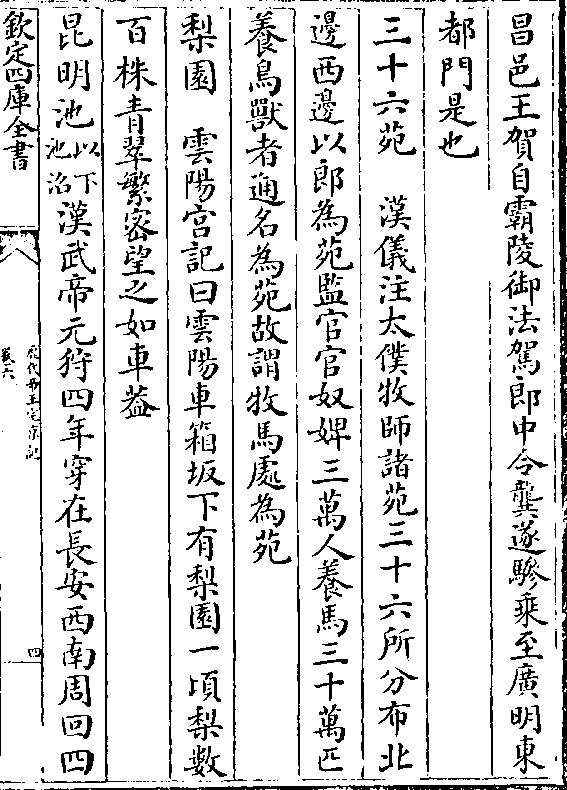 昌邑王賀自霸陵御法駕郎中令龔遂驂乗至廣明東
都門是也
三十六苑　漢儀注太僕牧師諸苑三十六所分布北
邊西邊以郎為苑監官官奴婢三萬人養馬三十萬匹
養鳥獸者通名為苑故謂牧馬處為苑
梨園　雲陽宫記曰雲陽車箱坂下有梨園一頃梨數
百株青翠繁密望之如車葢
昆明池以下池沼漢武帝元狩四年穿在長安西南周回四
欽定四庫全書
歴代帝王宅京記
卷六
四